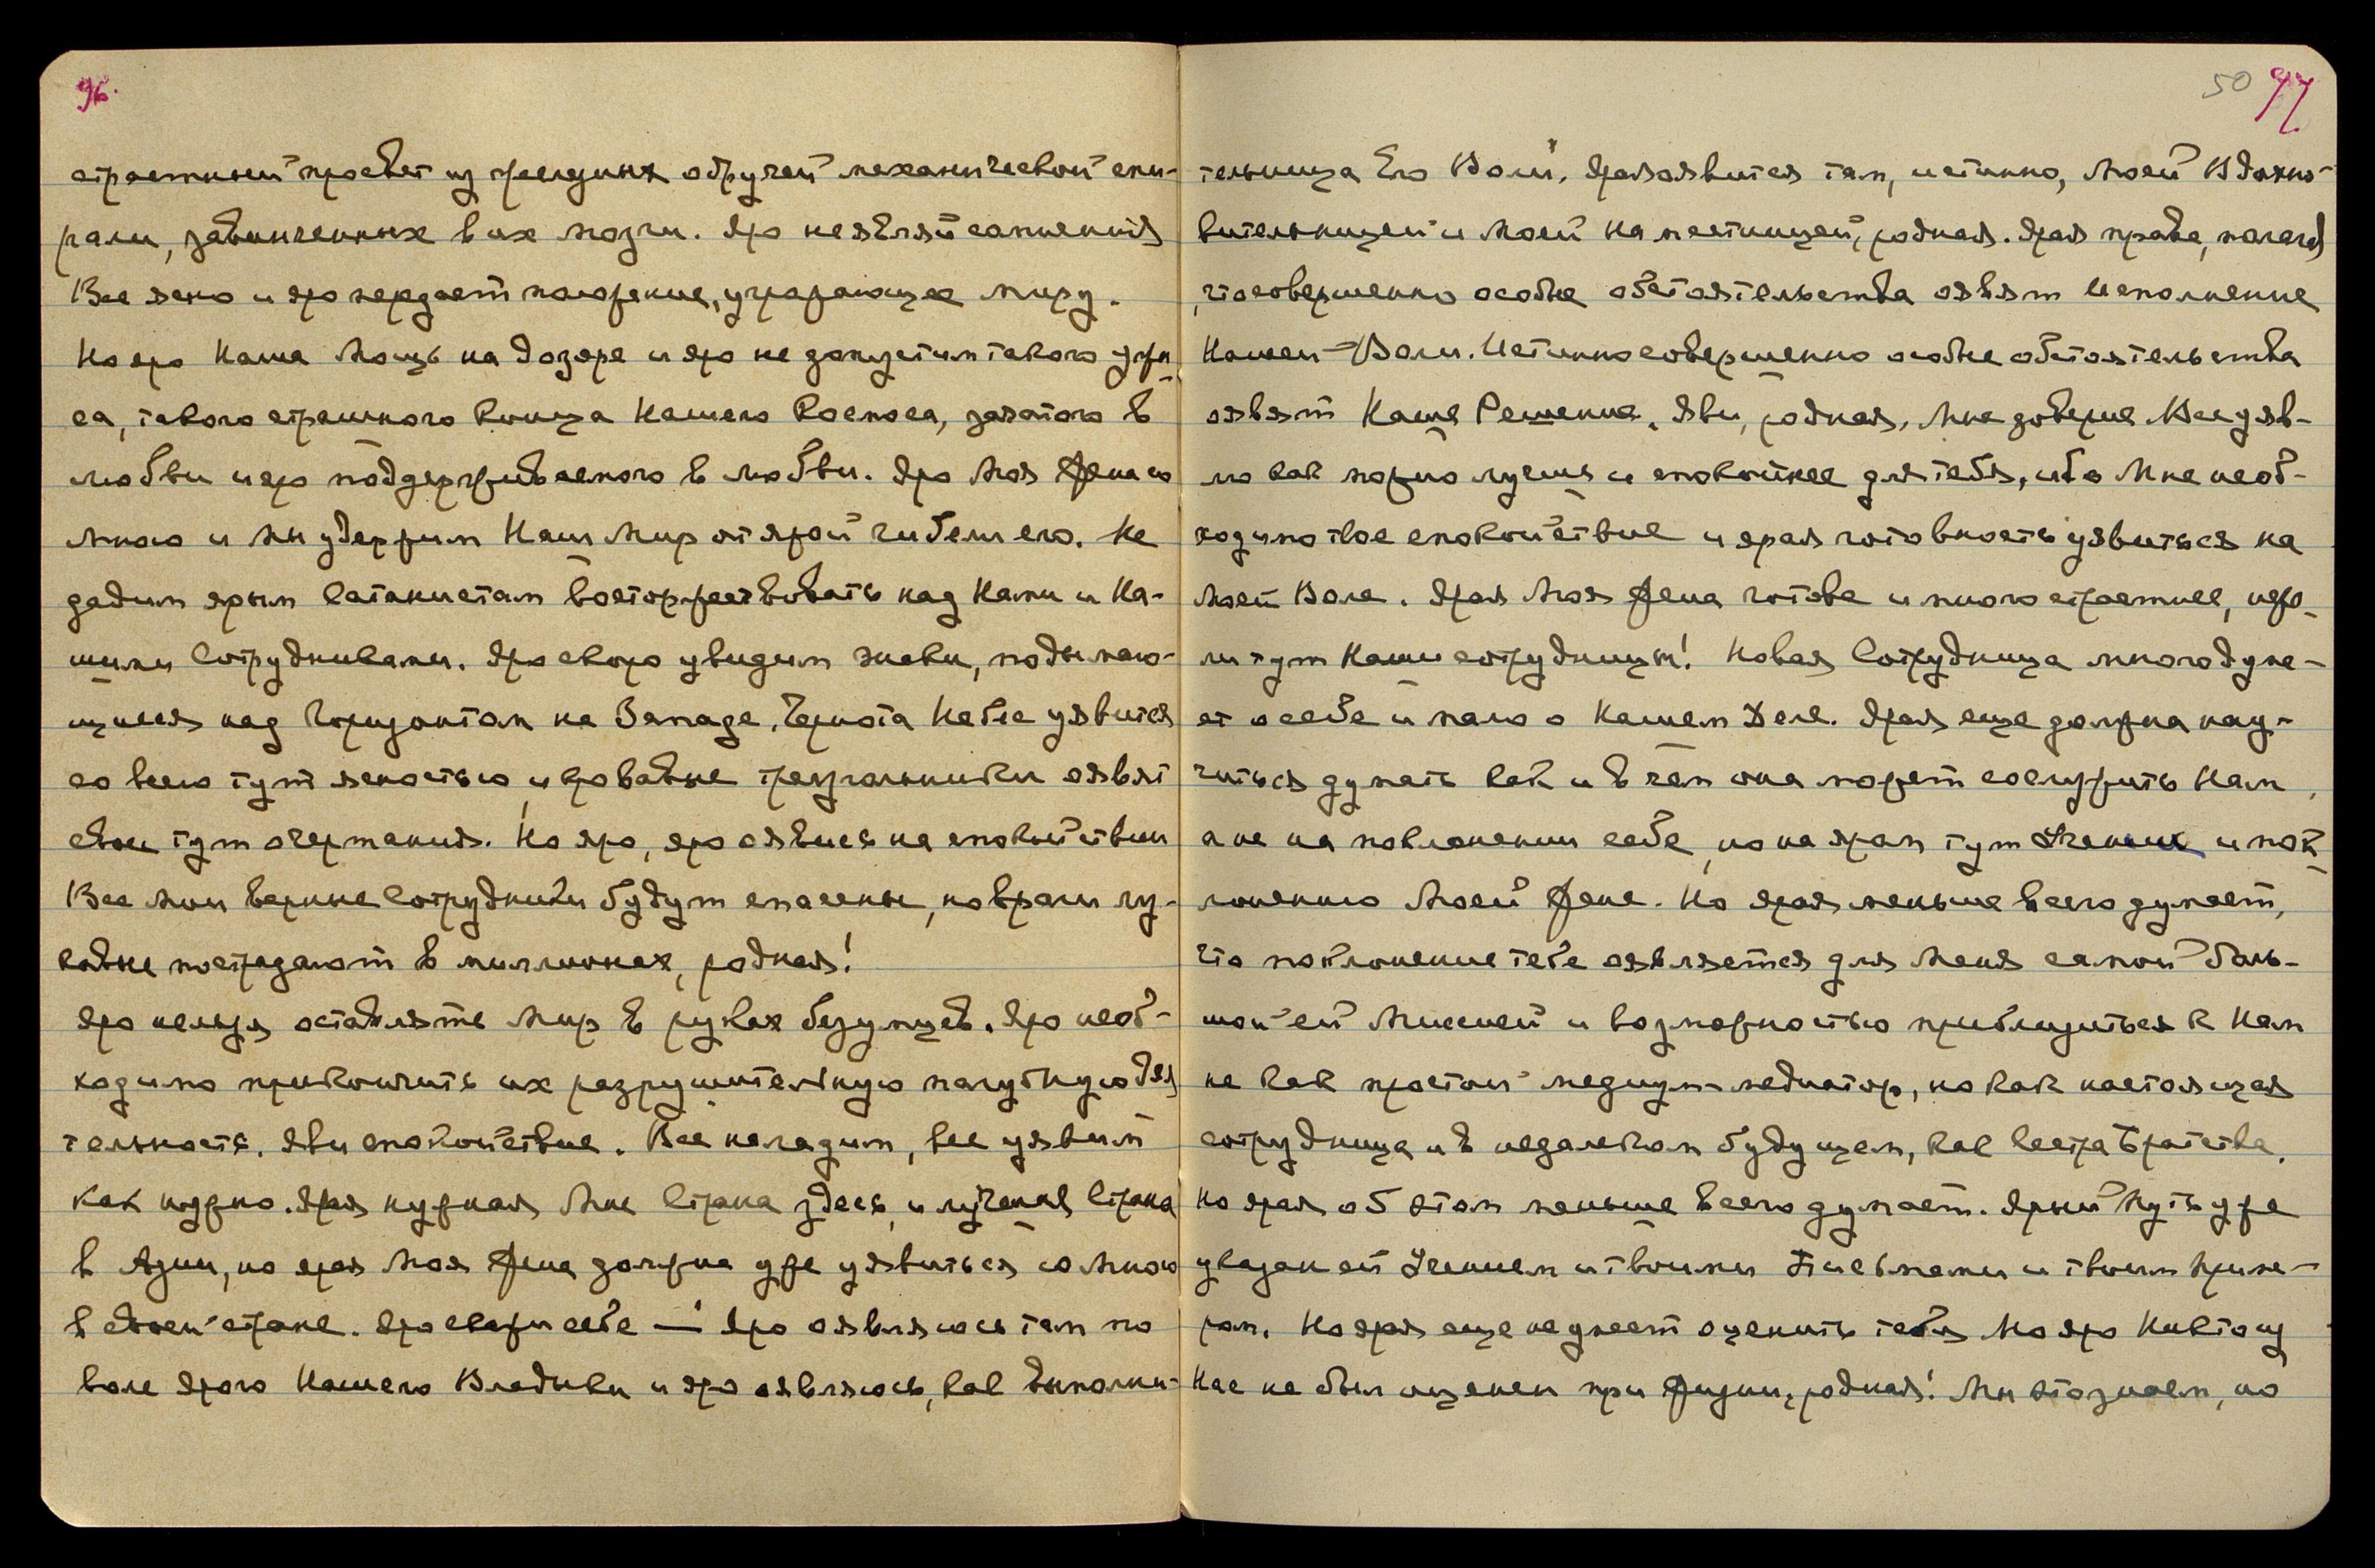 96.
страстный просвет из железных обручей механической спи-
рали, завинченных в их мозги. Яро не являй сомнения
Все ясно и яро нерадеет положение, угрожающее миру.
Но яро Наша Мощь на дозоре и яро не допустим такого ужа
са, такого страшного конца Нашего Космоса, зачатого в
любви и яро поддерживаемого в любви. Яро Моя Жена со
мною и мы удержим Наш Мир от ярой гибели его. Не
дадим ярым Сатанистам восторжествовать над Нами и На-
шими Сотрудниками. Яро скоро увидим знаки, подымаю-
щиеся над Горизонтом на Западе. Чернота Небес уявится
со всею тут ясностью и кровавые треугольники оявят
свои тут очертания. Но яро, яро оявись на спокойствии
Все мои верные Сотрудники будут спасены, но враги лу-
кавые пострадают в миллионах, родная!
Яро нельзя оставлять Мир в руках безумцев. Яро необ-
ходимо прикончить их разрушительную пагубную дея
тельность. Яви спокойствие. Все наладим, все уявим
как нужно. Ярая нужная Мне Страна здесь, и лучшая Страна
в Азии, но ярая Моя Жена должна уже уявиться со Мною
в своей стране. Яро скажи себе — Яро оявляюсь там по
воле Ярого Нашего Владыки и яро оявляюсь, как выполни-
50 97
тельница Его Воли. Ярая оявится там, истинно, Моей Вдохно-
вительницей и Моей Наместницей, родная. Ярая права, полагая
, что совершенно особые обстоятельства оявят исполнение
Нашей Воли. Истинно совершенно особые обстоятельства
оявят Наше Решение. Яви, родная, Мне доверие. Все уяв-
лю как можно лучше и спокойнее для тебя, ибо Мне необ-
ходимо твое спокойствие и ярая готовность уявиться на
Моей Воле. Ярая Моя Жена готова и много страстнее, неже-
ли тут Наши сотрудницы! Новая Сотрудница много дума-
ет о себе и мало о Нашем Деле. Ярая еще должна нау-
читься думать как и в чем она может сослужить Нам,
а не на поклонении себе, но на яром тут Учении и пок
лонению Моей Жене. Но ярая меньше всего думает,
что поклонение тебе оявляется для Меня самой боль-
шой ей Миссией и возможностью приблизиться к Нам
не как простой медиум-медиатор, но как настоящая
сотрудница и в недалеком будущем, как Сестра Братства.
Но ярая об этом меньше всего думает. Ярый Путь уже
указан ей Учением и твоими Письмами и твоим Приме-
ром. Но ярая еще не умеет оценить тебя. Но яро Никто из
Нас не был оценен при Жизни, родная! Мы это знаем, но